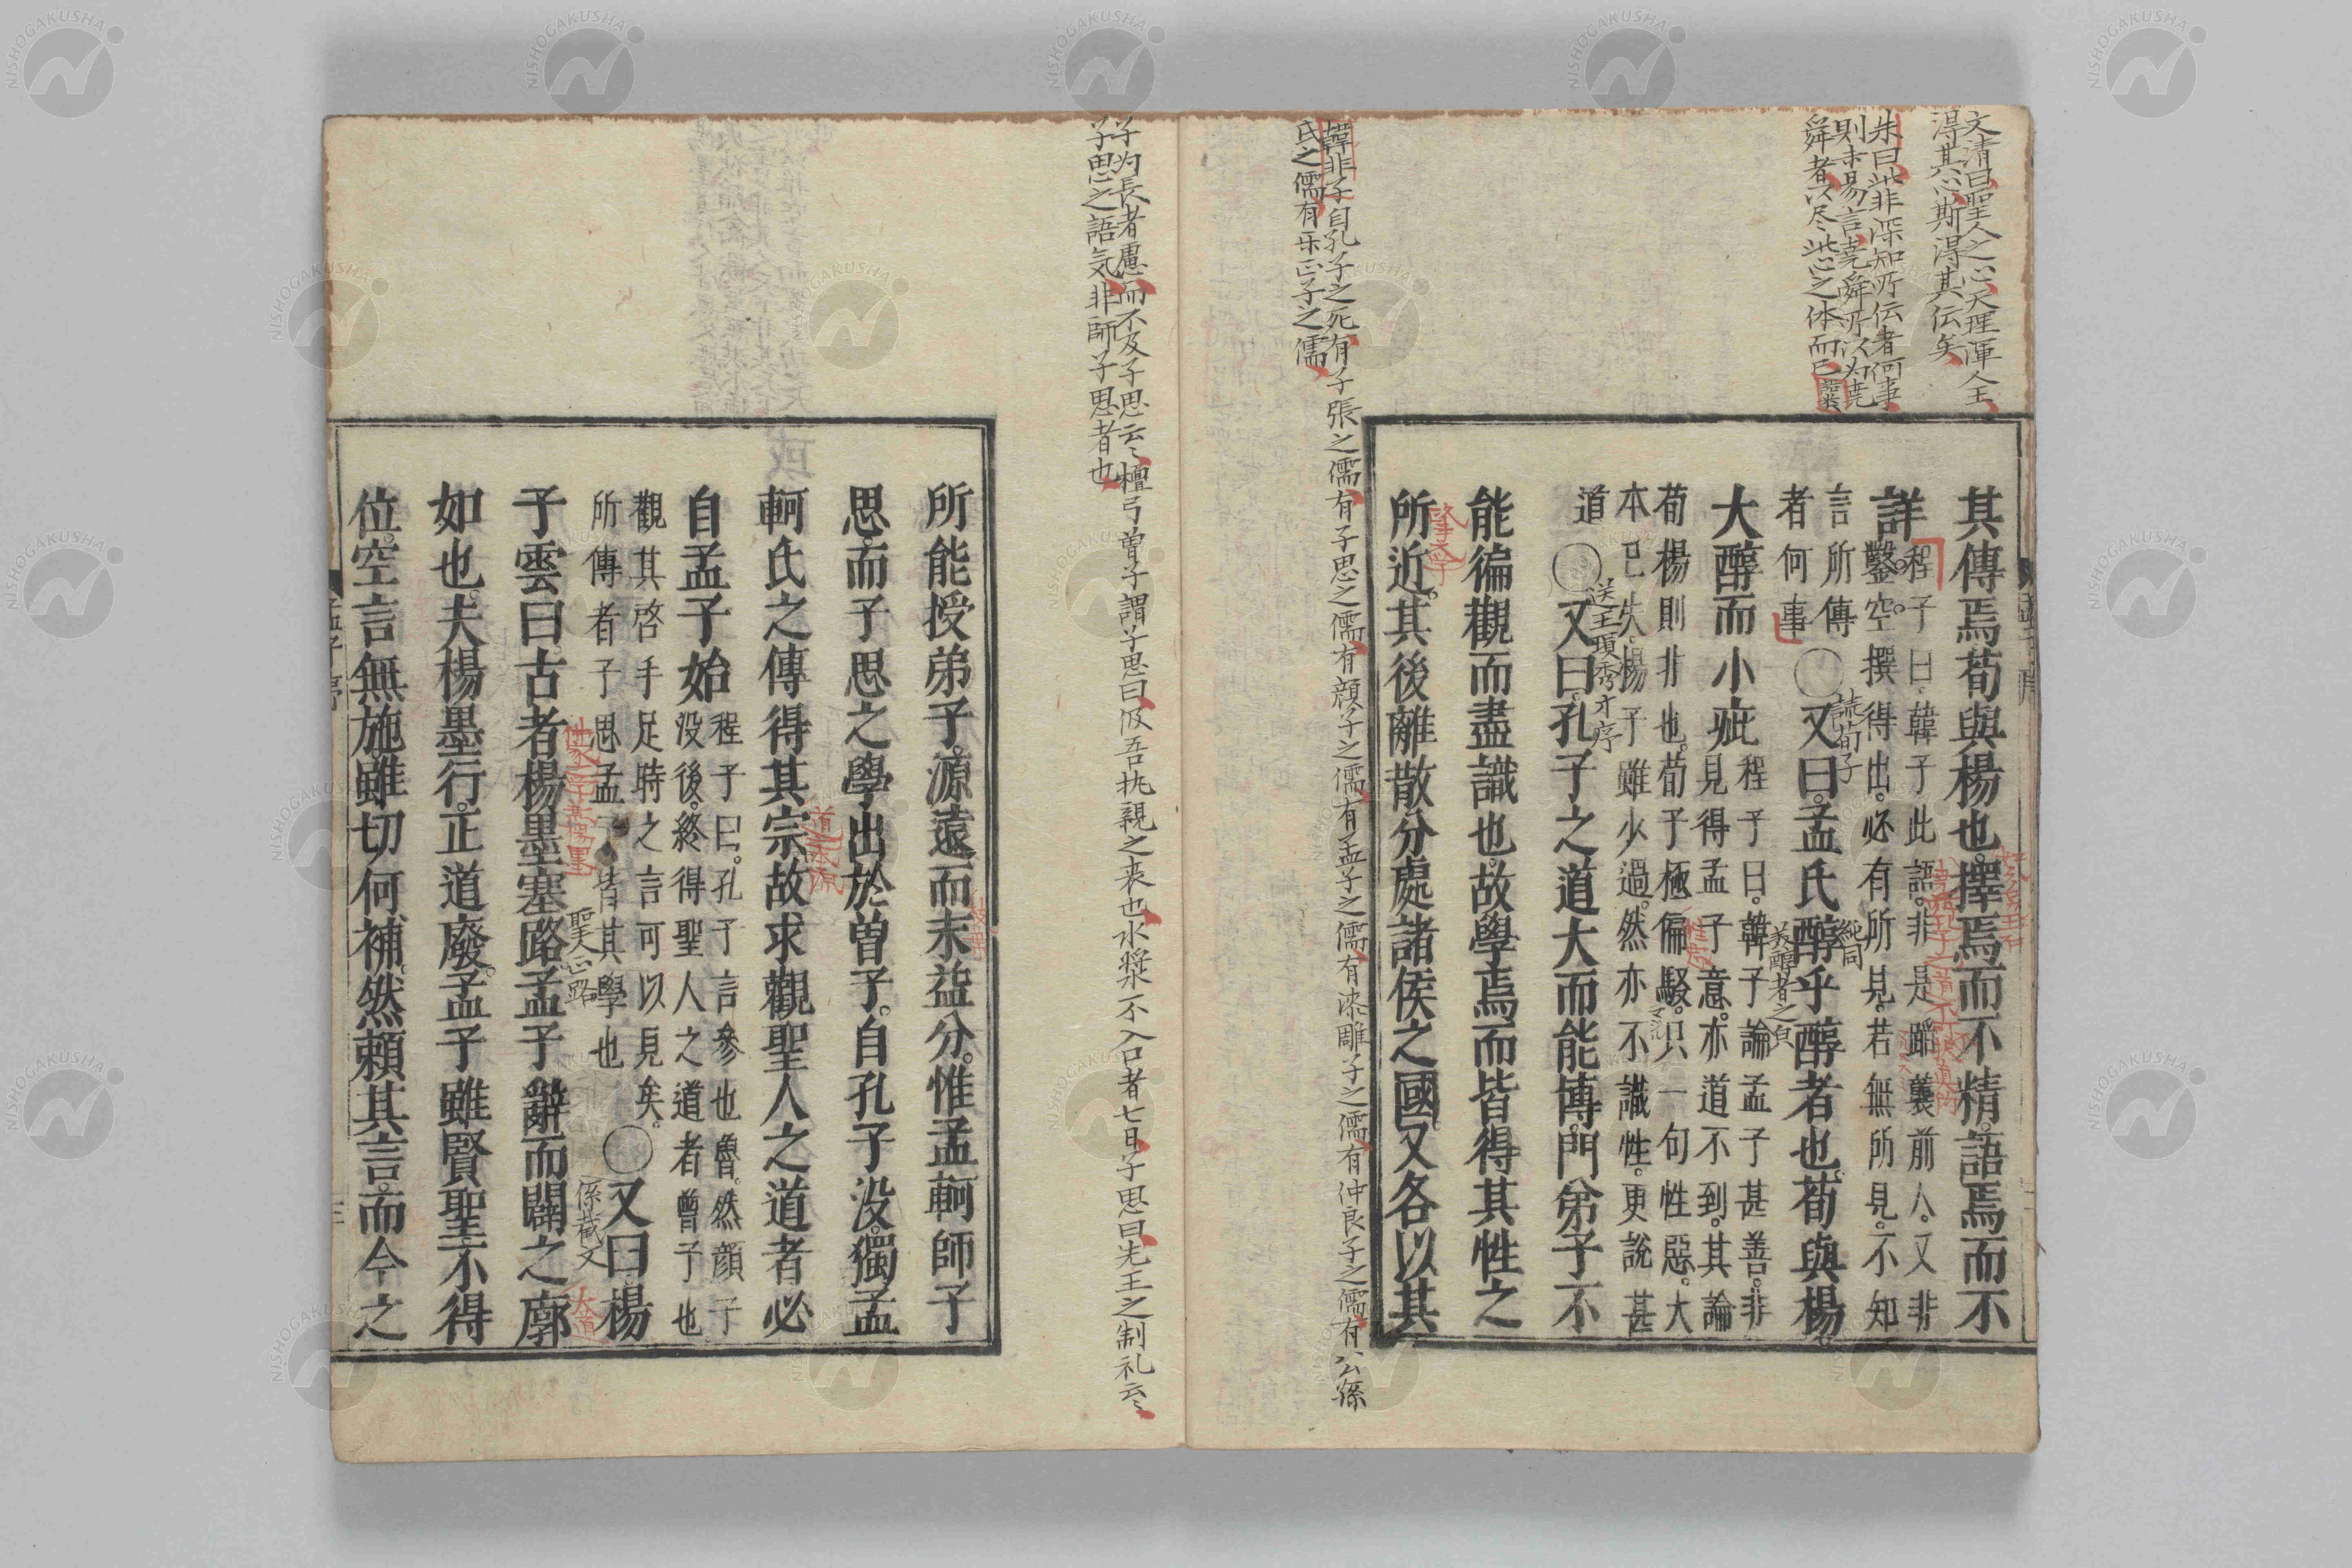 文清曰聖人之心天理渾人主
得其心斯得其伝矣
朱曰此非深知所伝者何事
則未易言堯舜所以为堯
舜者以尽此心之体而已
其傳焉荀與楊也擇焉而不精語焉而不
詳
程子曰韓子此語非是蹈襲前人又非
鑿空撰得出必有所見若無所見不知
言所傳
者何事
○又曰孟氏醇乎醇者也荀與楊
読荀子
純同
美醇者之皃
大醇而小疵
程子曰韓子論孟子甚善非
見得孟子意亦道不到其論
荀楊則非也荀子極偏駁只一句性惡大
本已失楊子雖少過然亦不識性更說甚
道
○又曰孔子之道大而能博門弟子不
送王頊秀才序
能徧觀而盡識也故學焉而皆得其性之
所近其後離散分處諸侯之國又各以其
韓非子自孔子之死有子張之儒有子思之儒有顔子之儒有孟子之儒有漆雕子之儒有仲良子之儒有公孫
氏之儒有乐正子之儒
子为長者慮而不及子思云〻檀弓曽子謂子思曰伋吾执親之丧也水漿不入口者七日子思曰先王之制礼云〻
子思之語気非師子思者也
所能授弟子源遠而末益分惟孟軻師子
思而子思之學出於曽子自孔子没獨孟
軻氏之傳得其宗故求觀聖人之道者必
自孟子始
程子曰孔子言參也魯然顔子
没後終得聖人之道者曾子也
觀其啓手足時之言可以見矣
所傳者子思孟子皆其學也
○又曰楊
係截文
大道
子雲曰古者楊墨塞路孟子辭而闢之廓
聖人正路
如也夫楊墨行正道廢孟子雖賢聖不得
位空言無施雖切何補然賴其言而今之